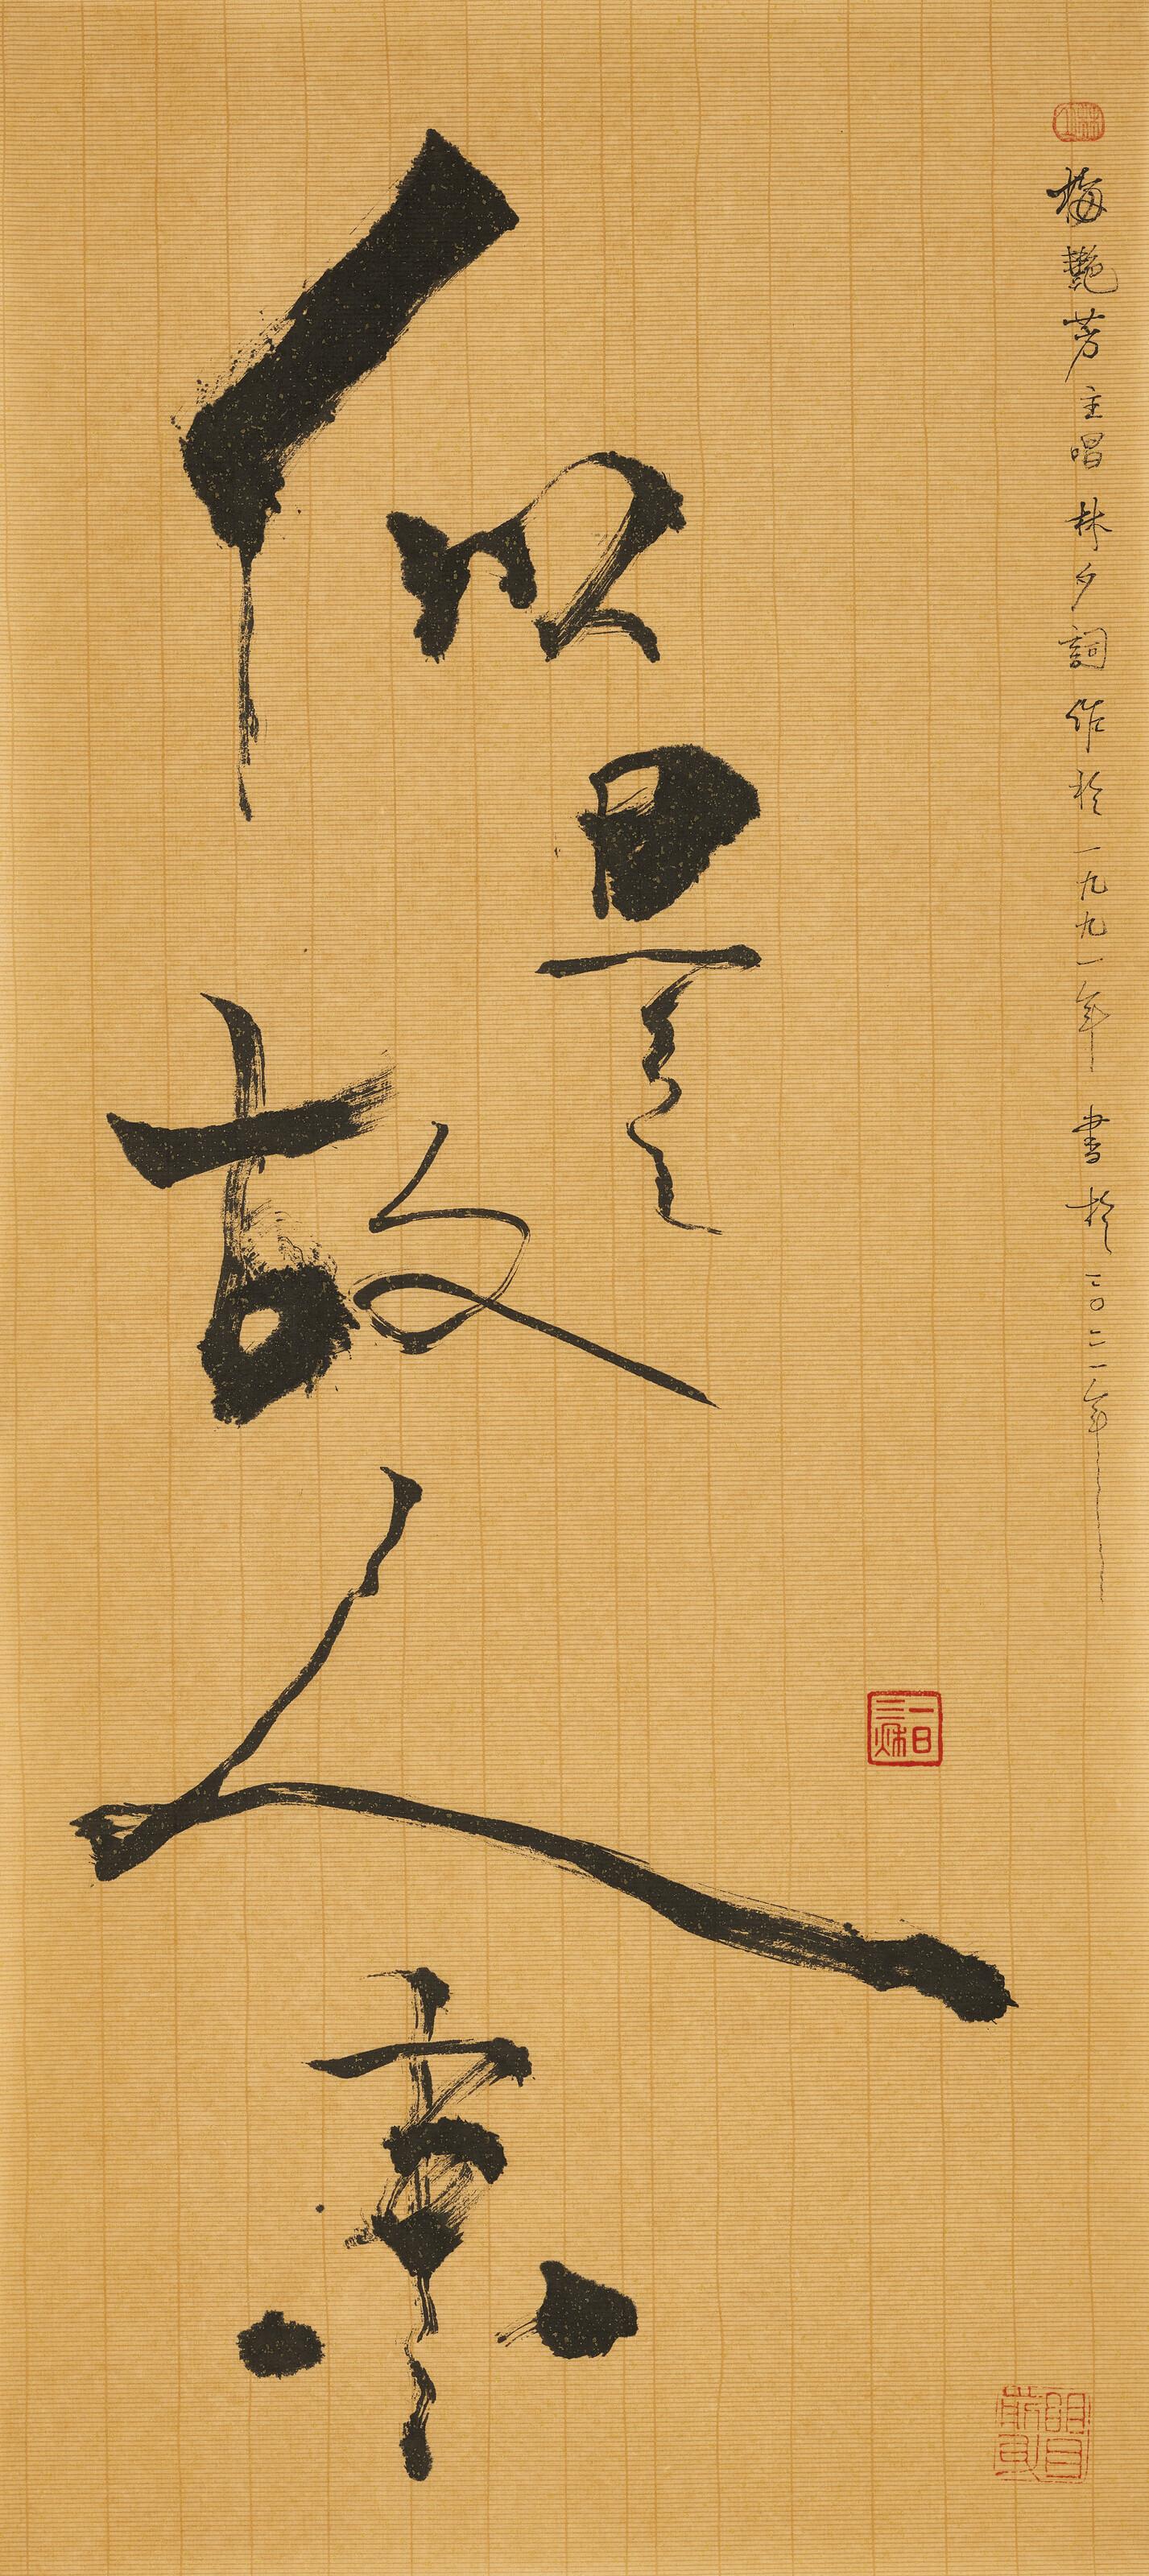 梅艷芳主唱林夕詞作於一九九一年書於二〇二一年
似是故人來
一日三秋